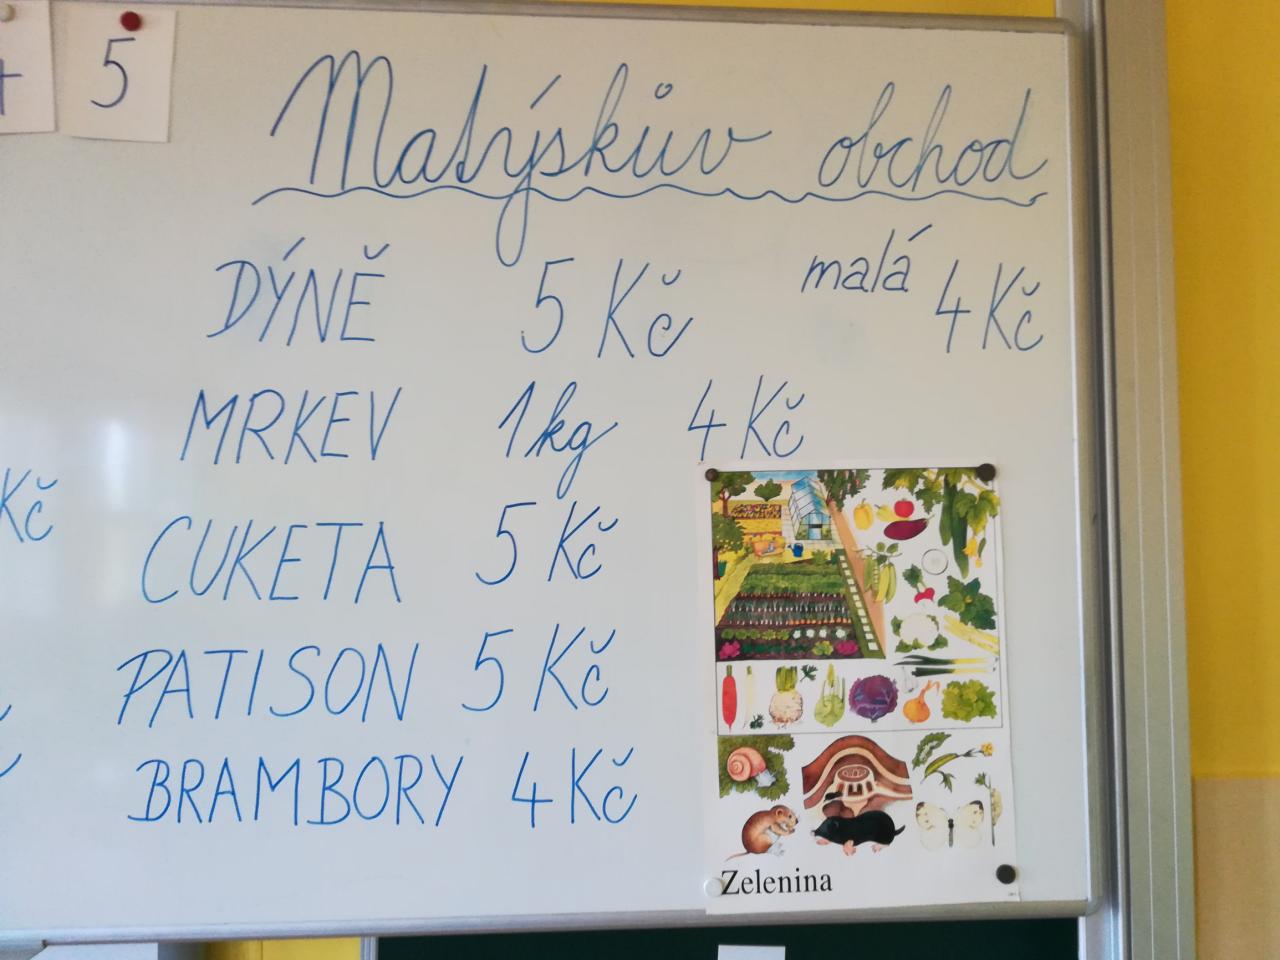 5
Matýskův obchod
DÝNĚ 5 Kč malá 4 Kč
MRKEV 1 kg 4 Kč
Kč
CUKETA 5 Kč
PATISON 5 Kč
BRAMBORY 4 Kč
Zelenina